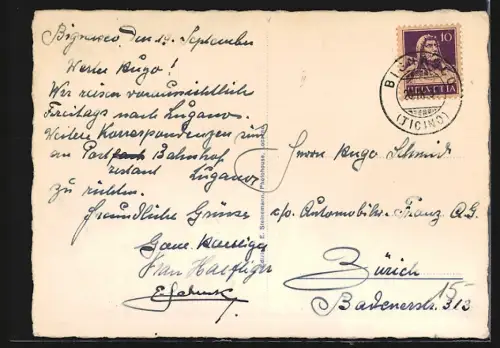 Bignasco, den 19. September
Werter Hugo!
Wir reisen voraussichtlich
Freitags nach Lugano.
Weitere Korrespondenzen sind
an Post Bahnhof
restant Lugano
zu richten.
Freundliche Grüsse
Frau Haefliger
10
HELVETIA
BIGNASCO
(TICINO)
E. Steinemann, Photohouse, Locarno
Herrn Hugo Schmid
c/o. Automobilw. Franz A.G.
Zürich
Badenerstr. 313
15-